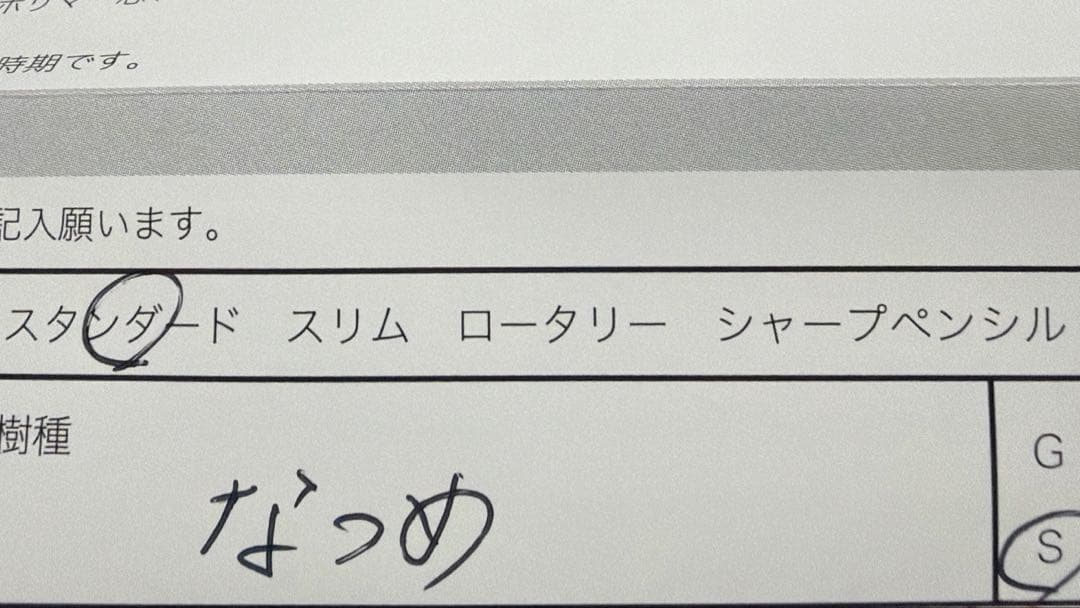 時期です。
記入願います。
スタンダード スリム ロータリー シャープペンシル
樹種
なつめ
G
S